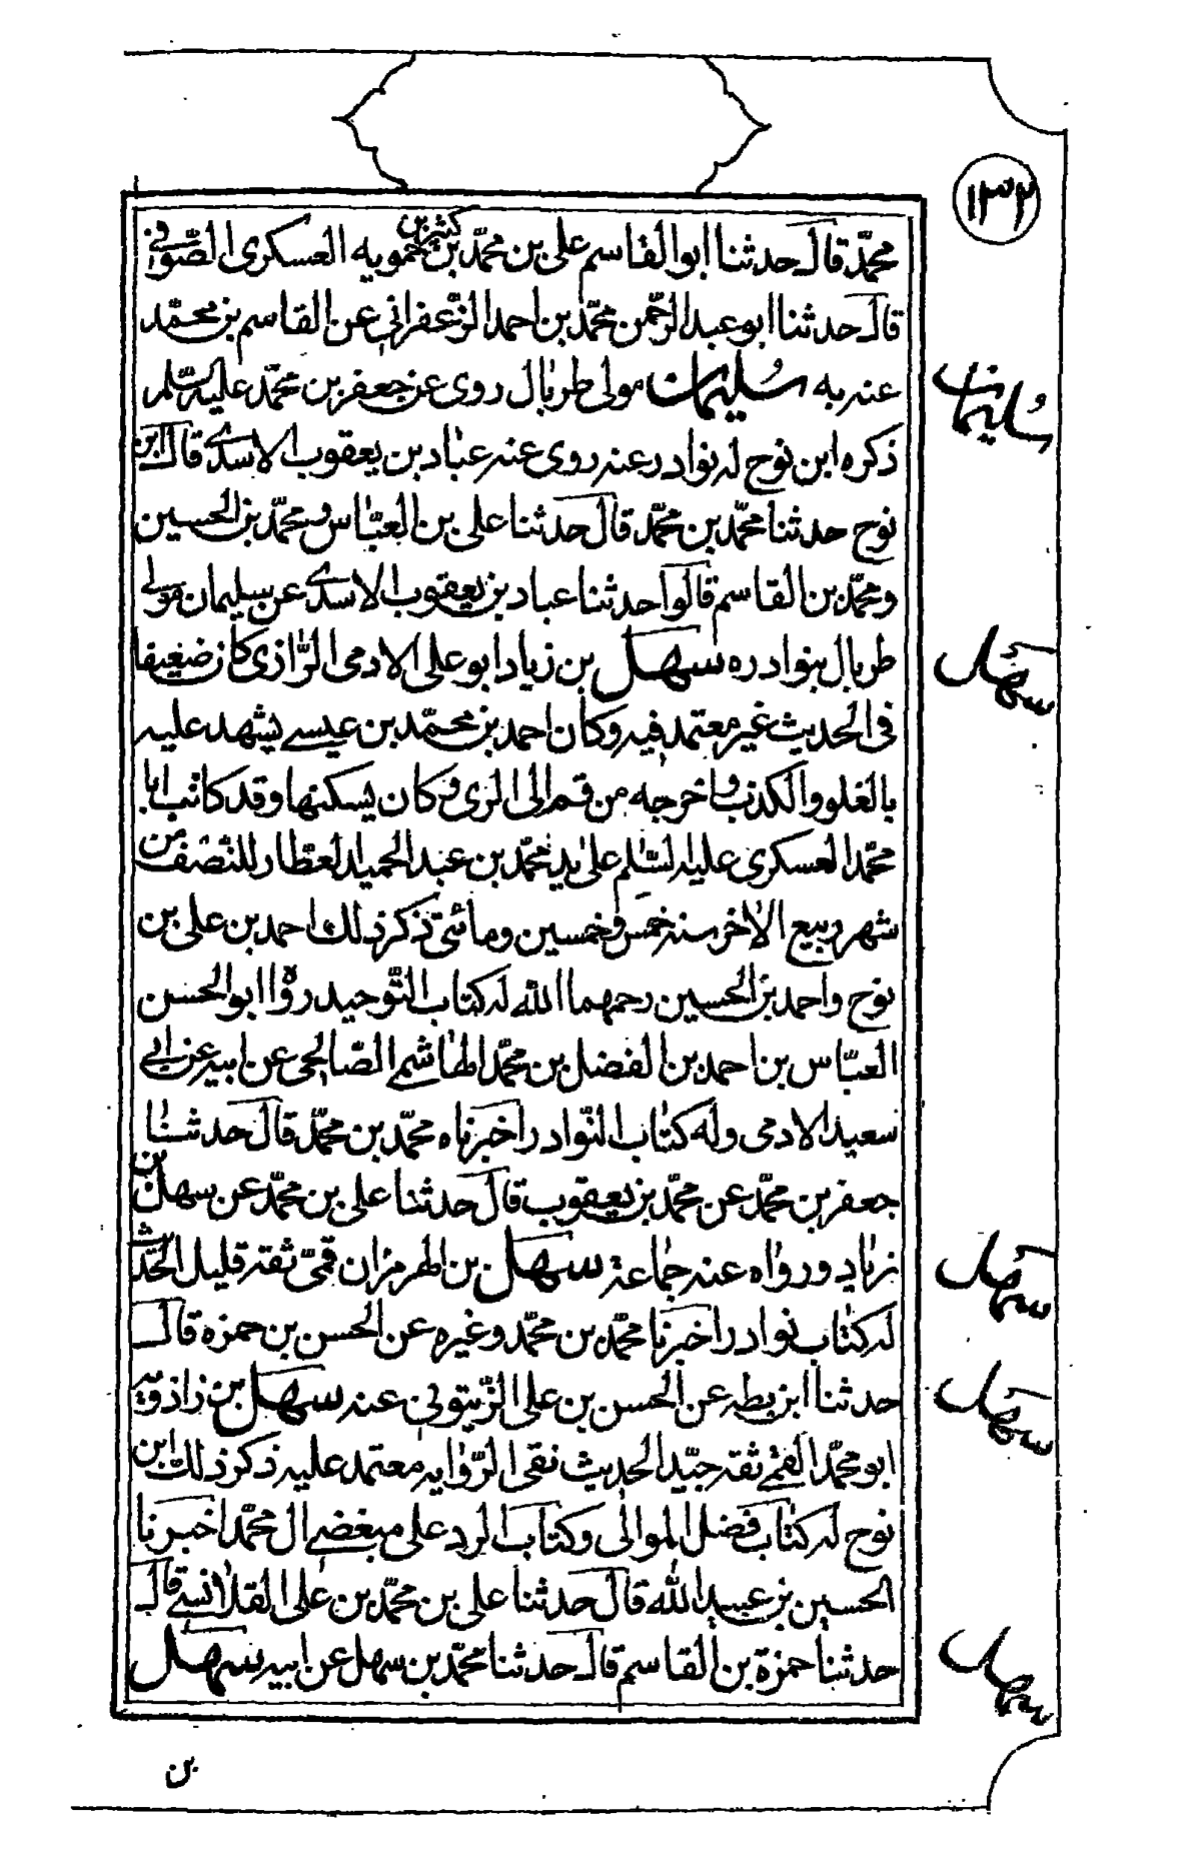 ١٣٢
محمّد قال حدثنا ابو القاسم على بن محمّد بن كثير بن حمويه العسكرى الصّوفى
قال حدثنا ابو عبد الرّحمن محمّد بن احمد الزّعفرانى عن القاسم بن محمّد
عنه به سُليمان مولى طربال روى عن جعفر بن محمّد عليه السّلم
ذكره ابن نوح له نوادر عنه روى عنه عبّاد بن يعقوب الاسدى قال ابن
نوح حدثنا محمّد بن محمّد قال حدثنا على بن العبّاس و محمّد بن الحسين
ومحمّد بن القاسم قالوا حدثنا عباد بن يعقوب الاسدى عن سليمان مولى
طربال بنوادره سهل بن زياد ابو على الادمى الرّازى كان ضعيفا
فى الحديث غير معتمد فيه وكان احمد بن محمّد بن عيسى يشهد عليه
بالغلو والكذب واخرجه من قم الى الرى وكان يسكنها وقد كاتب ابا
محمّد العسكرى عليه السّلم على يد محمّد بن عبد الحميد العطار للنصف من
شهر ربيع الاخر سنة خمس وخمسين ومائتى ذكر ذلك احمد بن على بن
نوح واحمد بن الحسين رحمهما الله له كتاب التّوحيد رواه ابو الحسن
العبّاس بن احمد بن الفضل بن محمّد الهاشمى الصّالحى عن ابيه عن ابى
سعيد الادمى وله كتاب النّوادر اخبرناه محمّد بن محمّد قال حدثنا
جعفر بن محمّد عن محمّد بن يعقوب قال حدثنا على بن محمّد عن سهل بن
زياد ورواه عنه جماعة سهل بن الهرمزان قمّى ثقة قليل الحديث
له كتاب نوادر اخبرنا محمّد بن محمّد وغيره عن الحسن بن حمزه قال
حدثنا ابن بطه عن الحسن بن على الزّيتونى عنه سهل بن زاذويه
ابو محمّد القمى ثقه جيّد الحديث نقى الرّوايه معتمد عليه ذكر ذلك ابن
نوح له كتاب فضل الموالى وكتاب الرد على مبغضى ال محمّد اخبرنا
الحسين بن عبيد الله قال حدثنا على بن محمّد بن على القلانسى قال
حدثنا حمزة بن القاسم قال حدثنا محمّد بن سهل عن ابيه سهل
بن
سُليمان
سهل
سهل
سهل
سهل